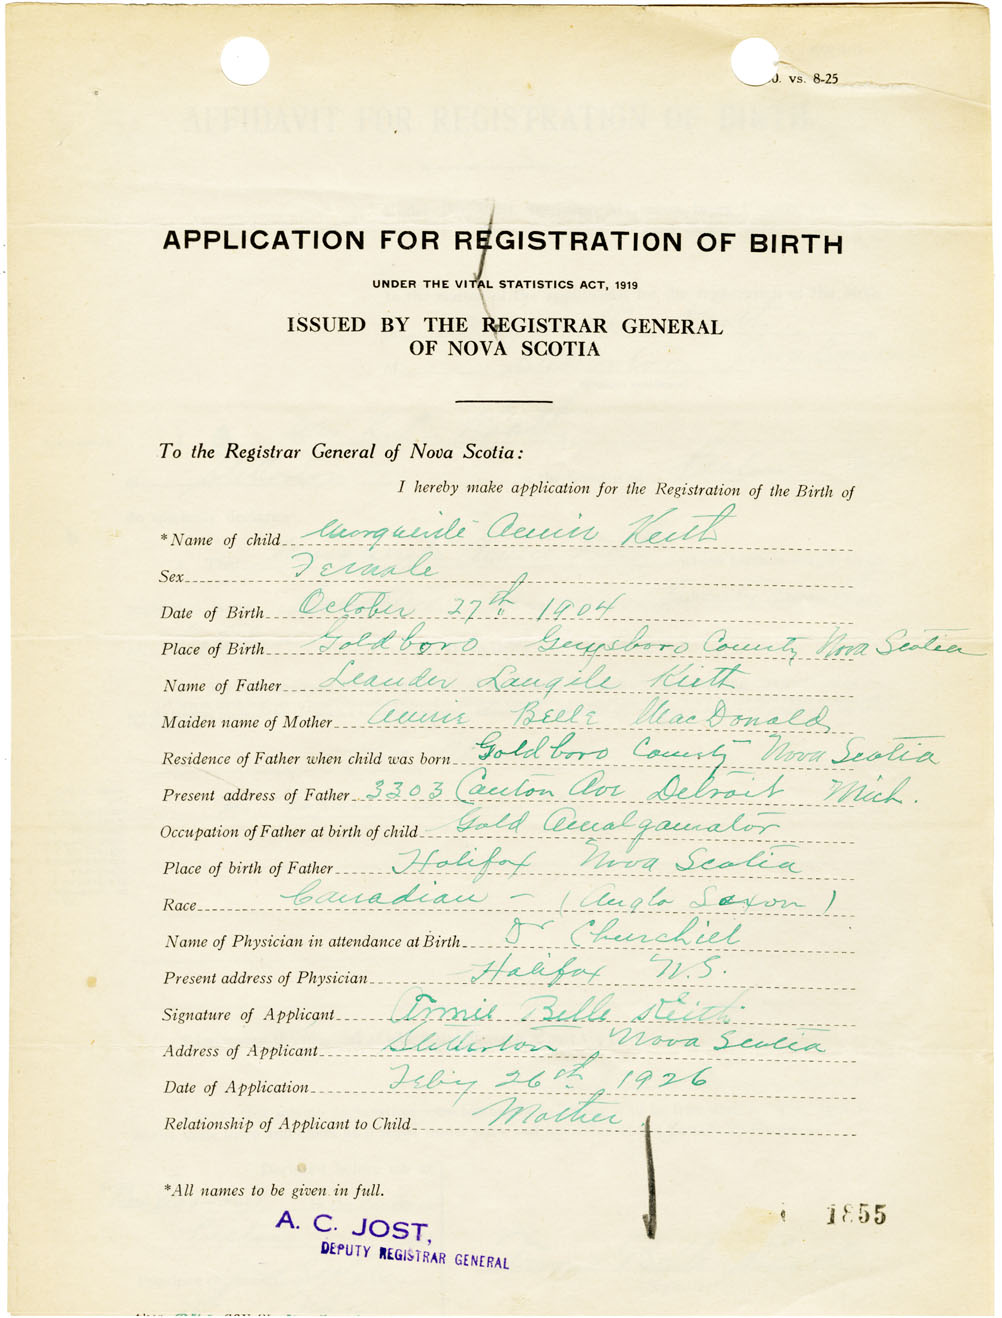 0. vs. 8-25
APPLICATION FOR REGISTRATION OF BIRTH
UNDER THE VITAL STATISTICS ACT, 1919
ISSUED BY THE REGISTRAR GENERAL
OF NOVA SCOTIA
To the Registrar General of Nova Scotia:
I hereby make application for the Registration of the Birth of
*Name of child Marguerite Annie Keith
Sex Female
Date of Birth October 27th 1904
Place of Birth Goldboro Guysboro County Nova Scotia
Name of Father Leander Langile Keith
Maiden name of Mother Annie Belle MacDonald
Residence of Father when child was born Goldboro County Nova Scotia
Present address of Father 3303 Canton Ave Detroit Mich.
Occupation of Father at birth of child Gold Amalgamator
Place of birth of Father Halifax Nova Scotia
Race Canadian - (Anglo Saxon)
Name of Physician in attendance at Birth Dr Churchill
Present address of Physician Halifax N.S.
Signature of Applicant Annie Belle Keith
Address of Applicant Stellerton Nova Scotia
Date of Application Feb'y 26th 1926
Relationship of Applicant to Child Mother
*All names to be given in full.
A. C. JOST,
DEPUTY REGISTRAR GENERAL
1855